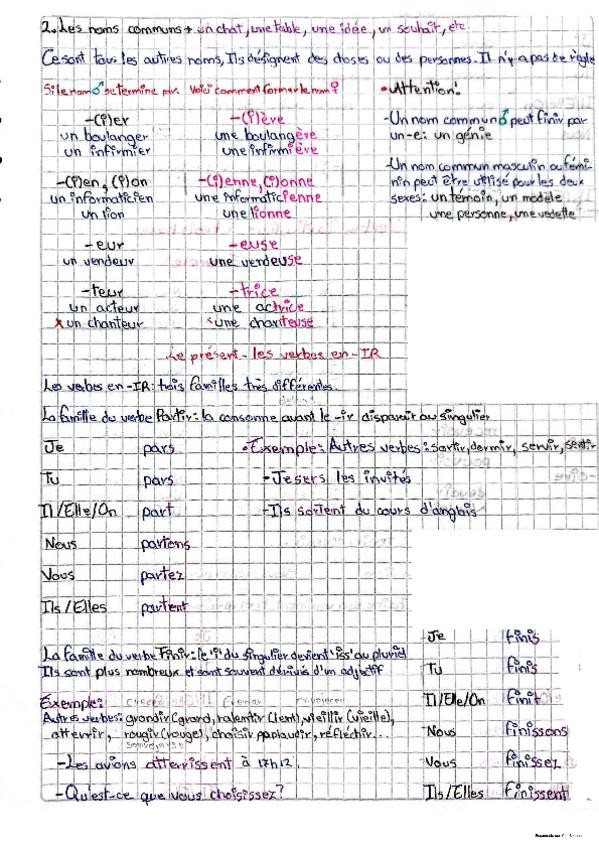 2. Les noms communs → un chat, une table, une idée, un souhait, etc.
Ce sont tous les autres noms, Ils désignent des choses ou des personnes. Il n'y a pas de règle
Si le nom ♂ se termine par. Voici comment former le nom ♀
-(i)er -(i)ère
un boulanger une boulangère
un infirmier une infirmière
-(i)en, (i)on -(i)enne, (i)onne
un informaticien une informaticienne
un lion une lionne
-eur -euse
un vendeur une vendeuse
-teur -trice
un acteur une actrice
x un chanteur x une chanteuse
• Attention!
-Un nom commun ♂ peut finir par
un -e: un génie
-Un nom commun masculin ou fémi-
nin peut être utilisé pour les deux
sexes: un témoin, un modèle
une personne, une vedette
Le présent - les verbes en -IR
Les verbes en -IR: trois familles très différentes.
La famille du verbe Partir: la consonne avant le -ir disparaît au singulier
Je pars
Tu pars
Il/Elle/On part
Nous partons
Vous partez
Ils/Elles partent
• Exemple: Autres verbes: sortir, dormir, servir, sentir
-Je sers les invités
-Ils sortent du cours d'anglais
La famille du verbe Finir: le 'i' du singulier devient 'iss' au pluriel
Ils sont plus nombreux et sont souvent dérivés d'un adjectif
Exemple:
Autres verbes: grandir (grand), ralentir (lent), vieillir (vieille),
atterrir, rougir (rouge), choisir, applaudir, réfléchir...
-Les avions atterrissent à 17h12.
-Qu'est-ce que vous choisissez?
Je finis
Tu finis
Il/Elle/On finit
Nous finissons
Vous finissez
Ils/Elles finissent